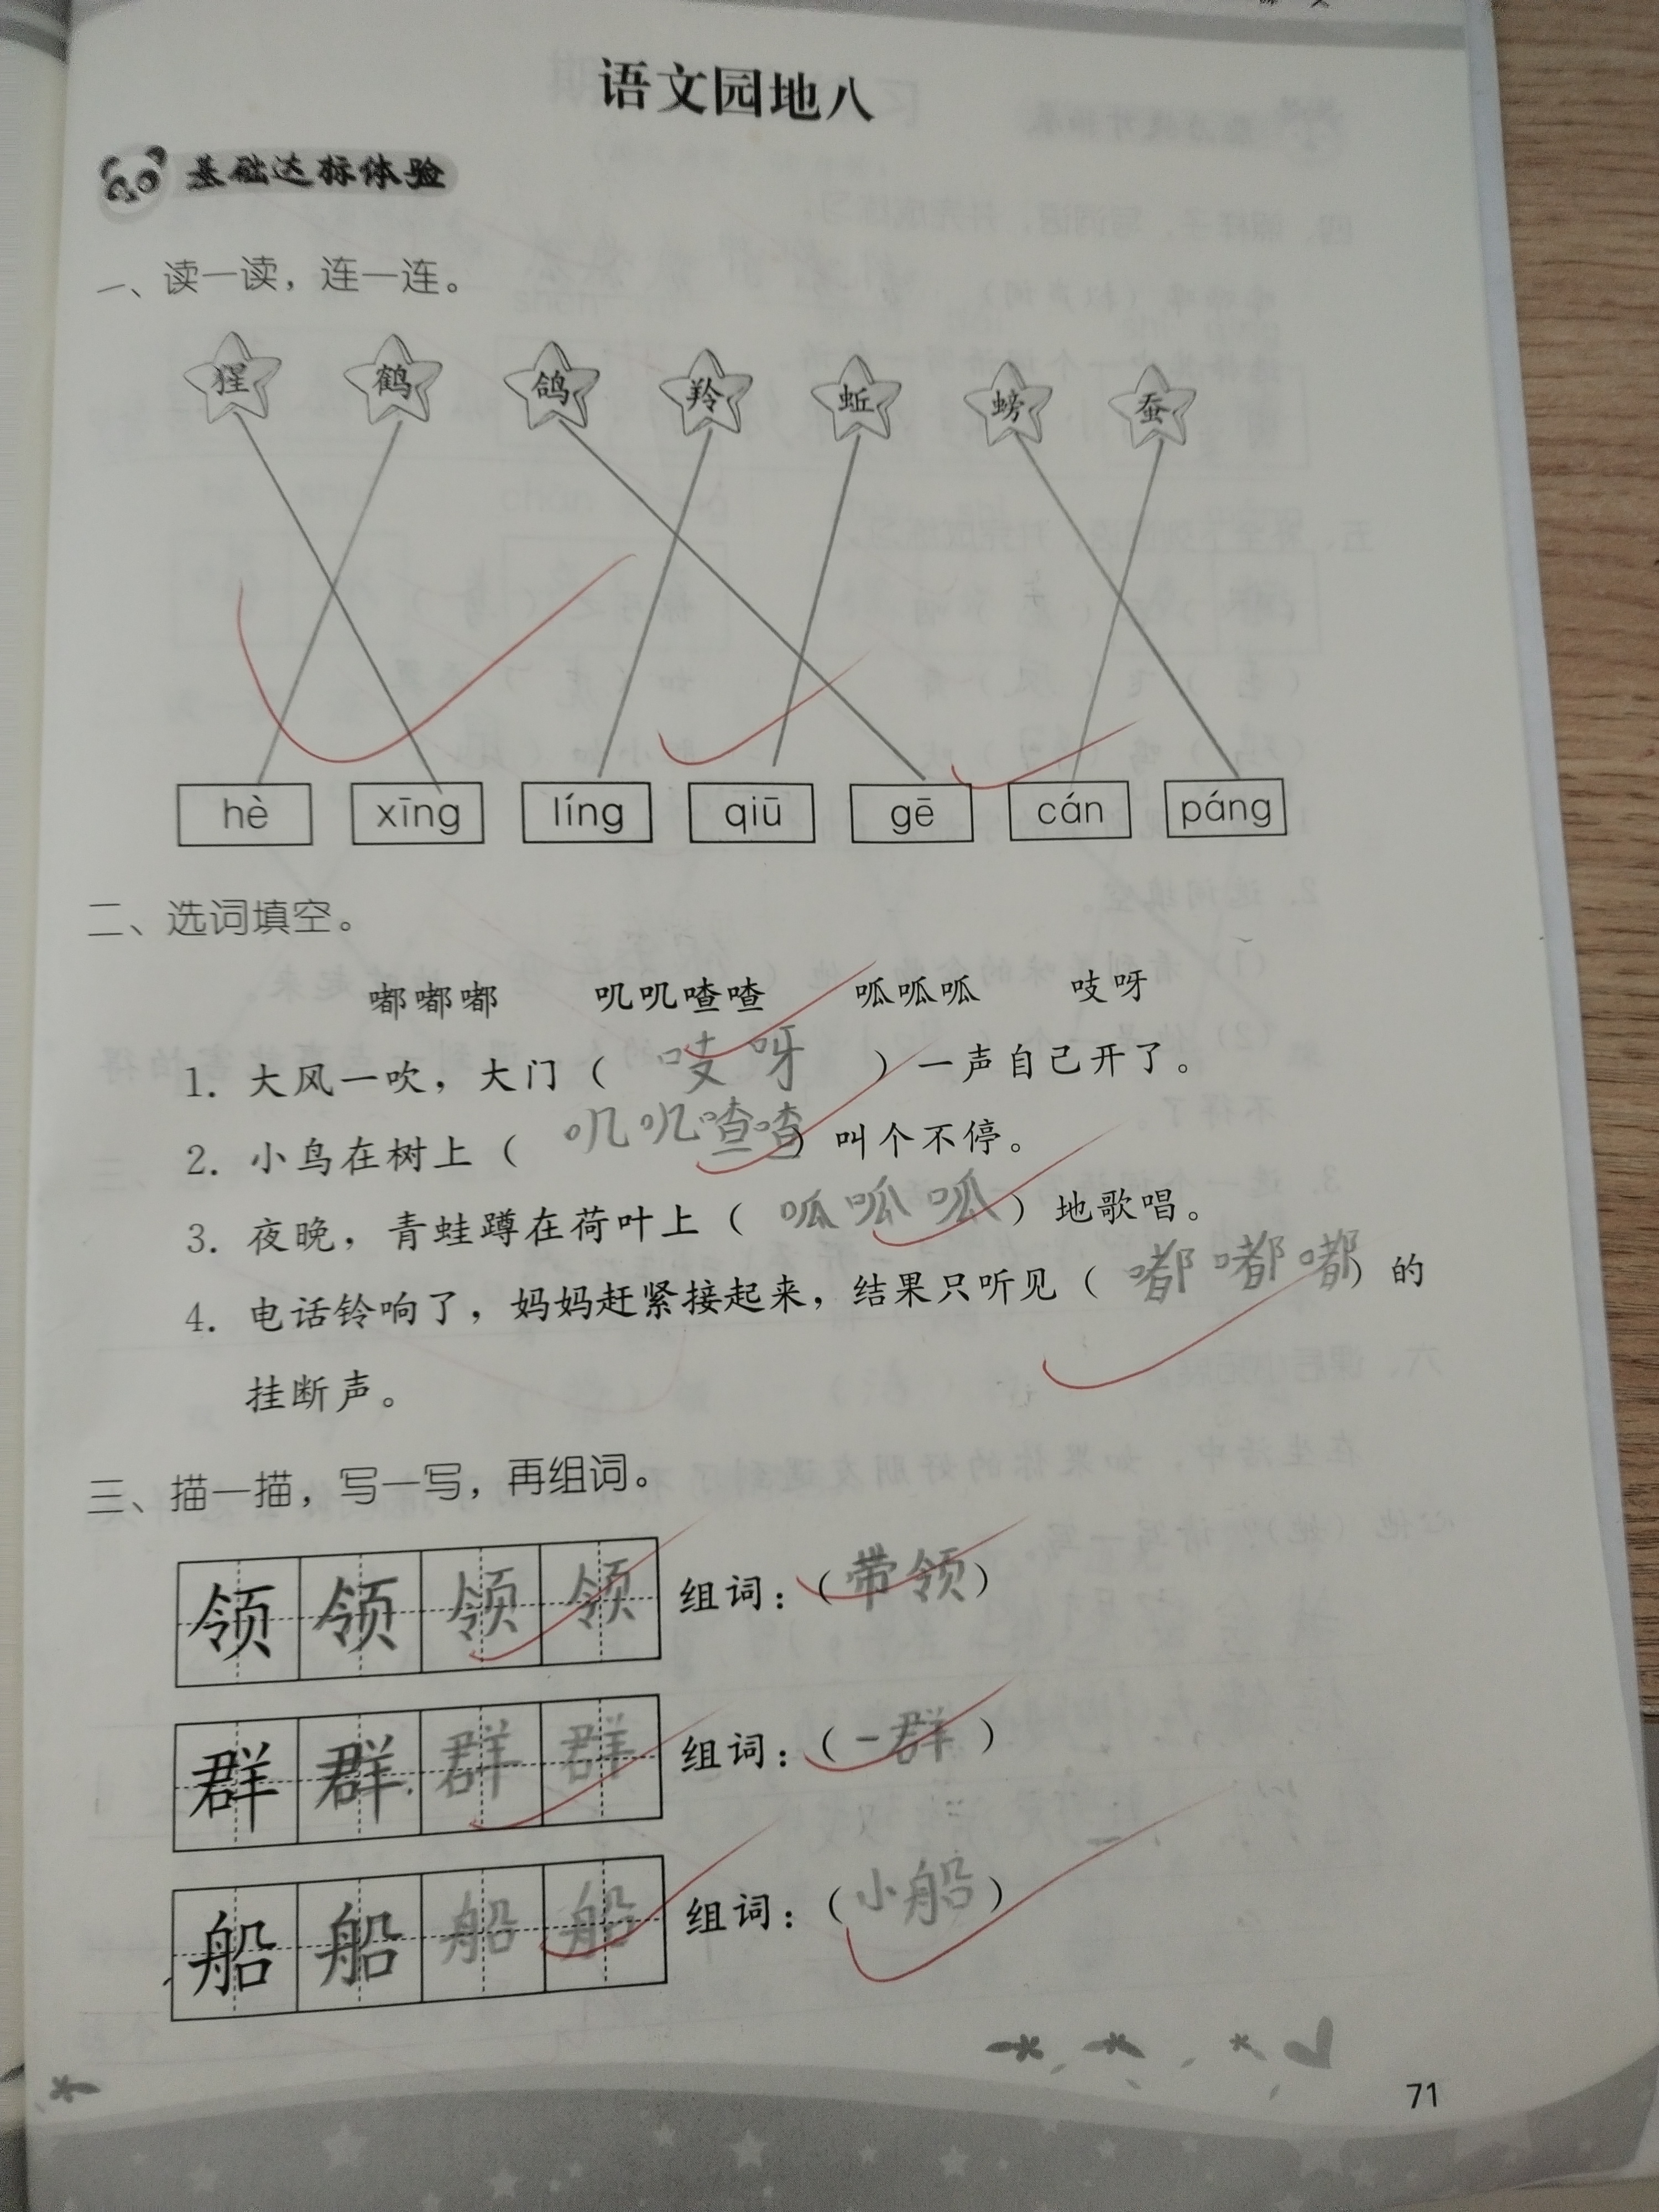 语文园地八
基础达标体验
一、读一读，连一连。
猩 鹤 鸽 羚 蚯 螃 蚕
hè xīng líng qiū gē cán páng
二、选词填空。
嘟嘟嘟 叽叽喳喳 呱呱呱 吱呀
1. 大风一吹，大门（ 吱呀 ）一声自己开了。
2. 小鸟在树上（ 叽叽喳喳 ）叫个不停。
3. 夜晚，青蛙蹲在荷叶上（ 呱呱呱 ）地歌唱。
4. 电话铃响了，妈妈赶紧接起来，结果只听见（ 嘟嘟嘟 ）的
挂断声。
三、描一描，写一写，再组词。
领 领 领 领 组词：（带领）
群 群 群 群 组词：（一群）
船 船 船 船 组词：（小船）
71